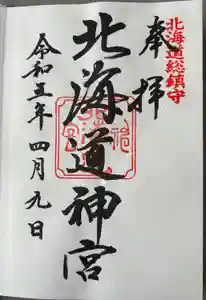 北海道総鎮守
奉拝
北海道神宮
令和五年四月九日